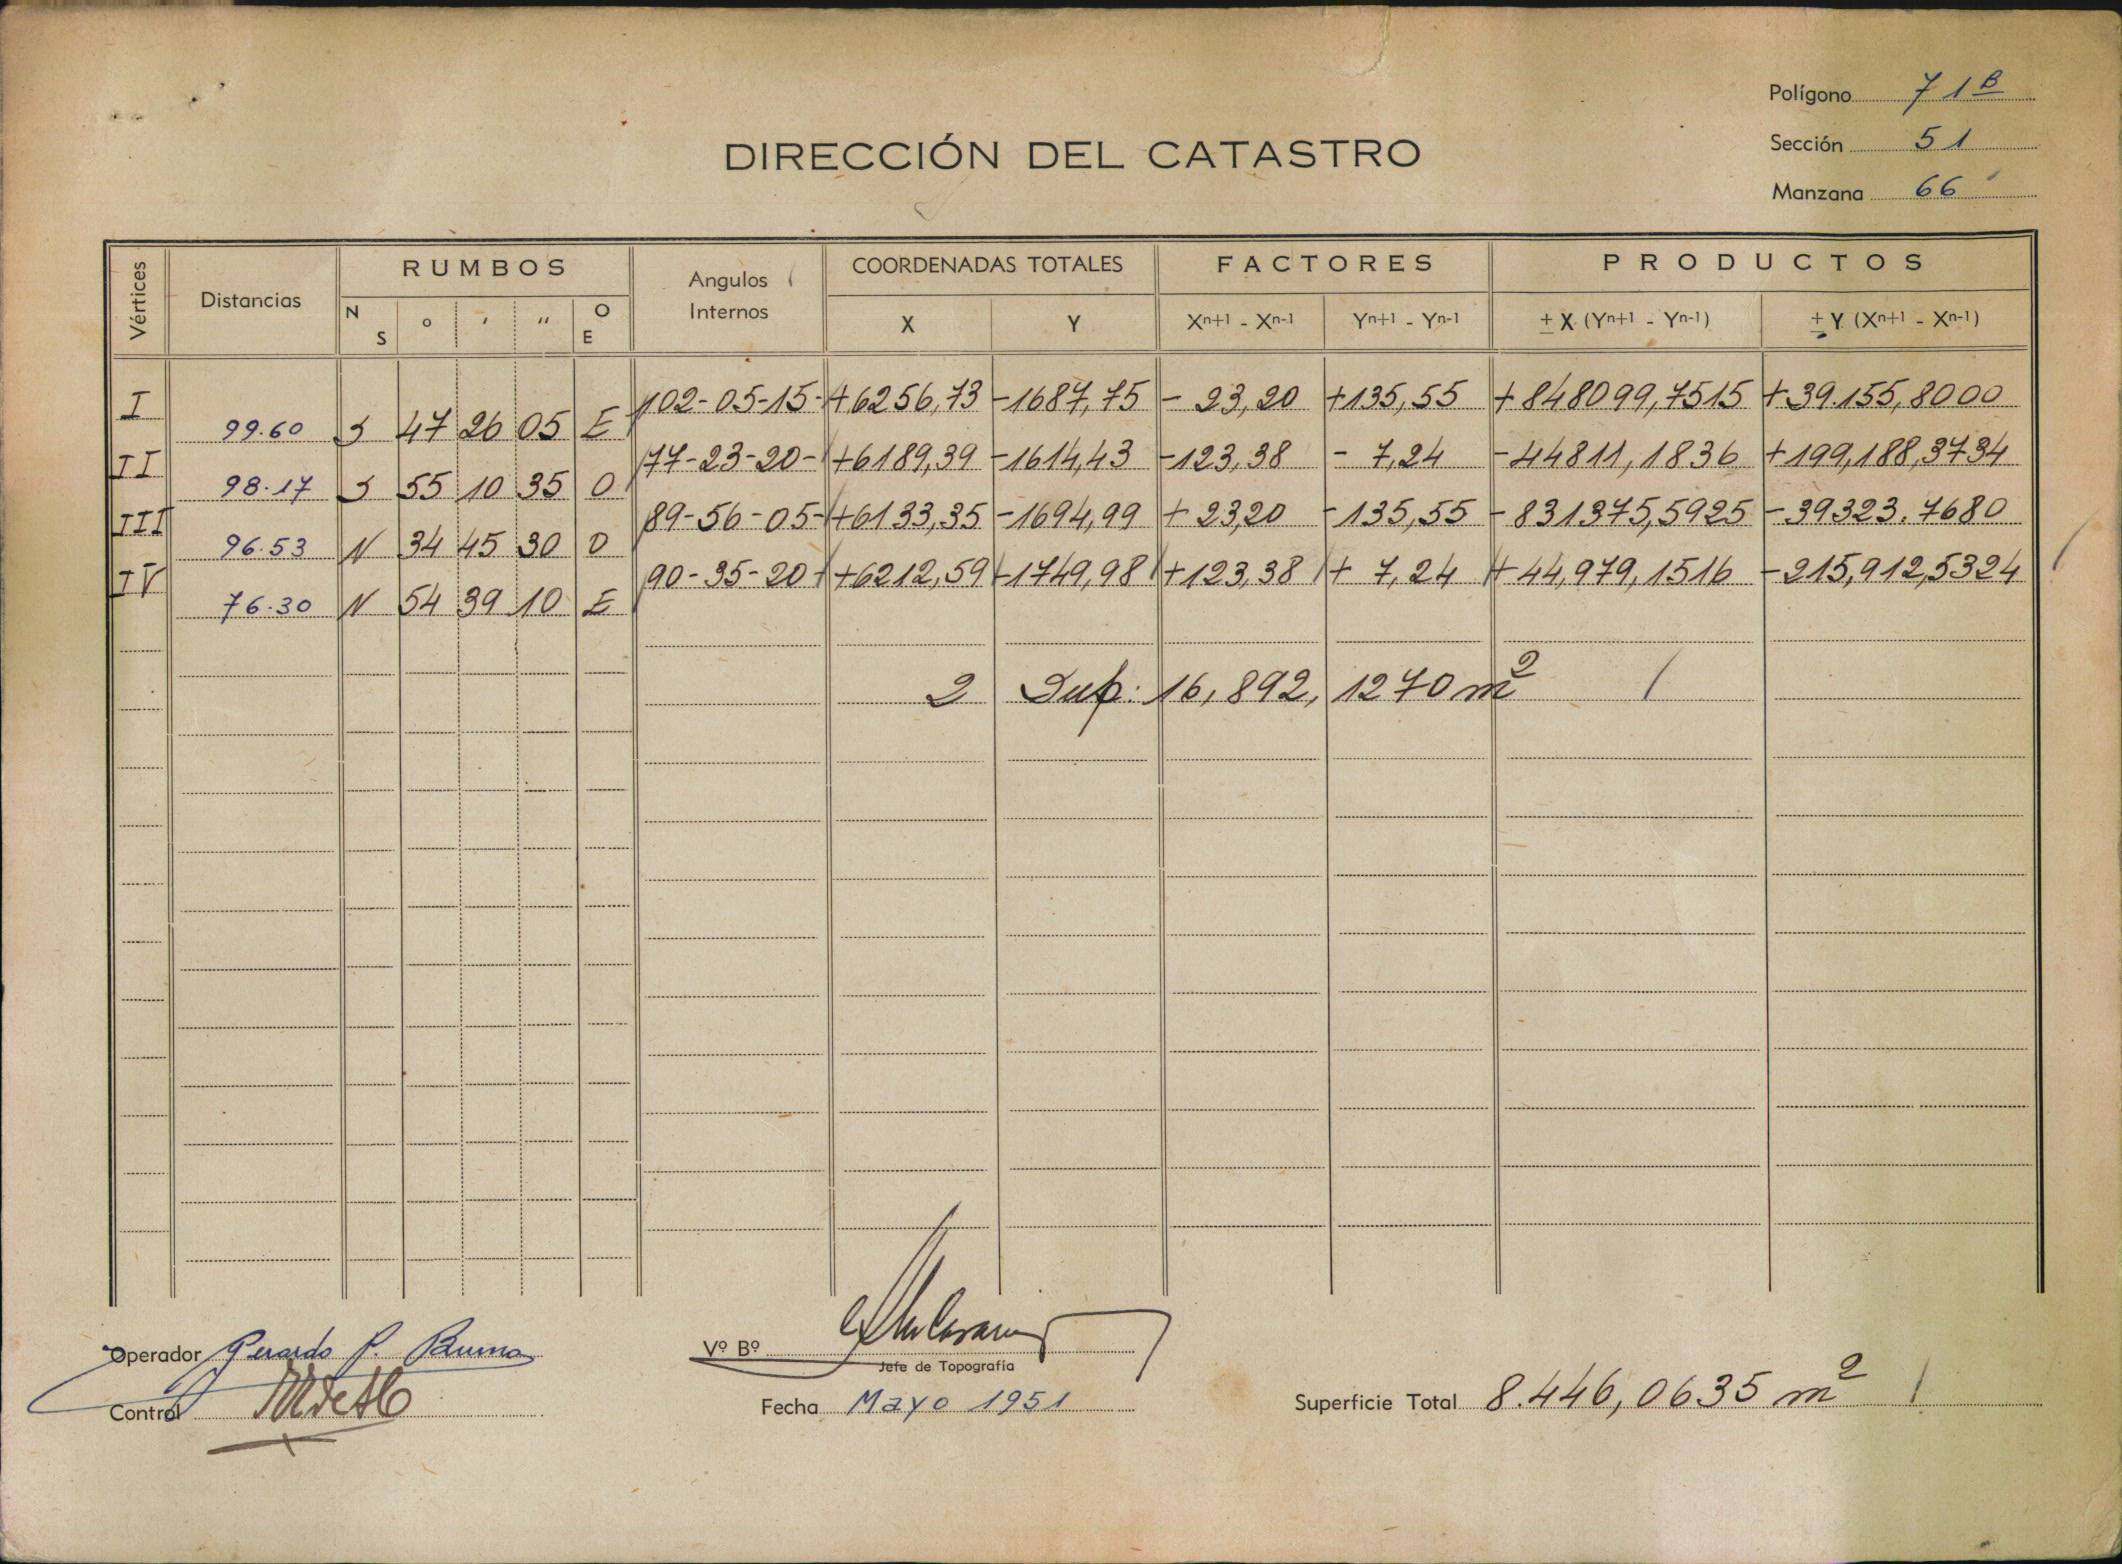 Polígono 71 B
Sección 51
Manzana 66
DIRECCIÓN DEL CATASTRO
Vértices Distancias RUMBOS Angulos Internos COORDENADAS TOTALES FACTORES PRODUCTOS
N S o ' '' O E X Y Xn+1 - Xn-1 Yn+1 - Yn-1 ± X (Yn+1 - Yn-1) ± Y (Xn+1 - Xn-1)
I 102-05-15- +6256,73 -1687,75 - 23,20 +135,55 +848099,7515 +39.155,8000
99.60 S 47 26 05 E
II 77-23-20- +6189,39 -1614,43 -123,38 - 7,24 -44811,1836 +199,188,3734
98.17 S 55 10 35 O
III 89-56-05- +6133,35 -1694,99 + 23,20 -135,55 -831375,5925 -39323.7680
96.53 N 34 45 30 O
IV 90-35-20 +6212,59 -1749,98 +123,38 + 7,24 +44,979,1516 -215,912,5324
76.30 N 54 39 10 E
2 Sup: 16,892,1270 m2
Operador Gerardo P. Bruno
Vº Bº
Jefe de Topografía
Control
Fecha Mayo 1951
Superficie Total 8.446,0635 m2